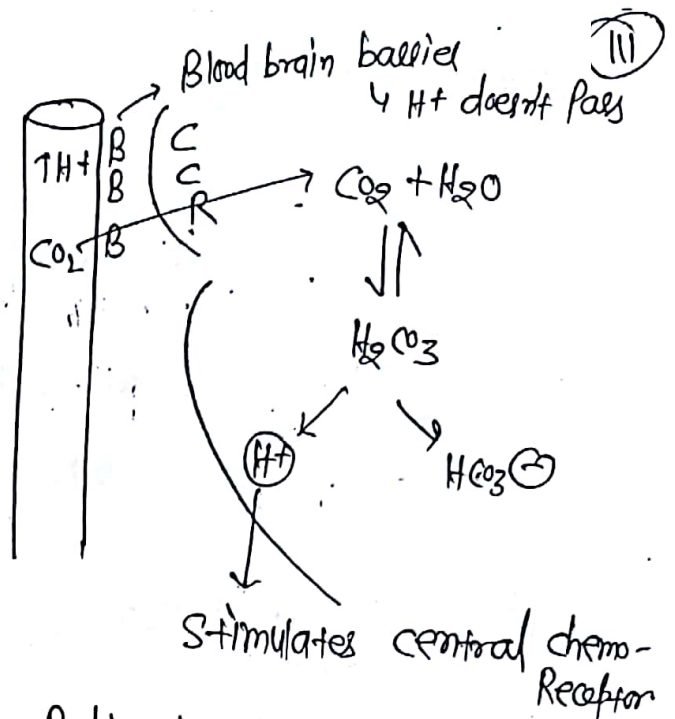 III
Blood brain barrier
↳ H+ doesn't Pass
↑H+
B
B
B
C
C
R
CO2
CO2 + H2O
H2CO3
H+
HCO3⊖
Stimulates central chemo-
Receptor